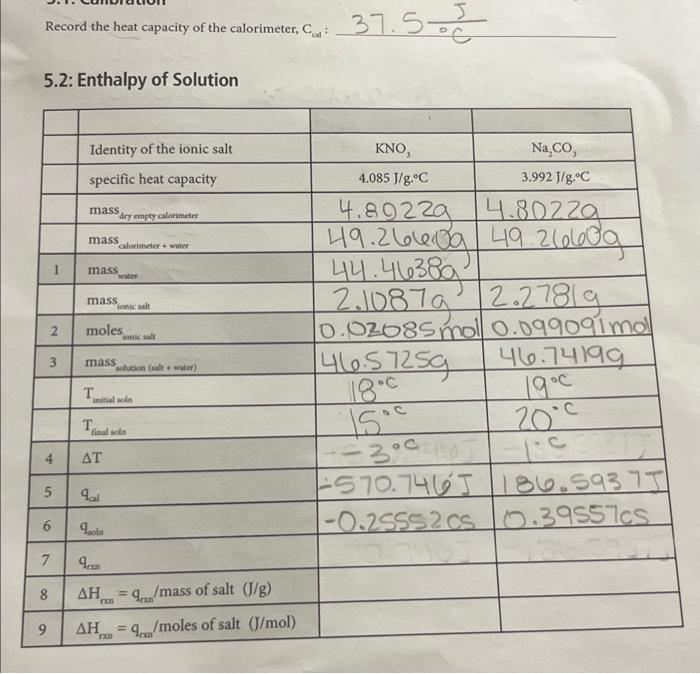 Record the heat capacity of the calorimeter, Ccal: 37.5 J/°C
5.2: Enthalpy of Solution
Identity of the ionic salt KNO3 Na2CO3
specific heat capacity 4.085 J/g.°C 3.992 J/g.°C
mass dry empty calorimeter 4.8022g 4.8022g
mass calorimeter + water 49.2660g 49.2660g
1 mass water 44.4638g
mass ionic salt 2.1087g 2.2781g
2 moles ionic salt 0.02085mol 0.099091mol
3 mass solution (salt + water) 46.5725g 46.7419g
T initial soln 18°C 19°C
T final soln 15°C 20°C
4 ΔT -3°C 1°C
5 qcal -570.746J 186.5937J
6 qsoln -0.25552cs 0.39557cs
7 qrxn
8 ΔHrxn = qrxn/mass of salt (J/g)
9 ΔHrxn = qrxn/moles of salt (J/mol)